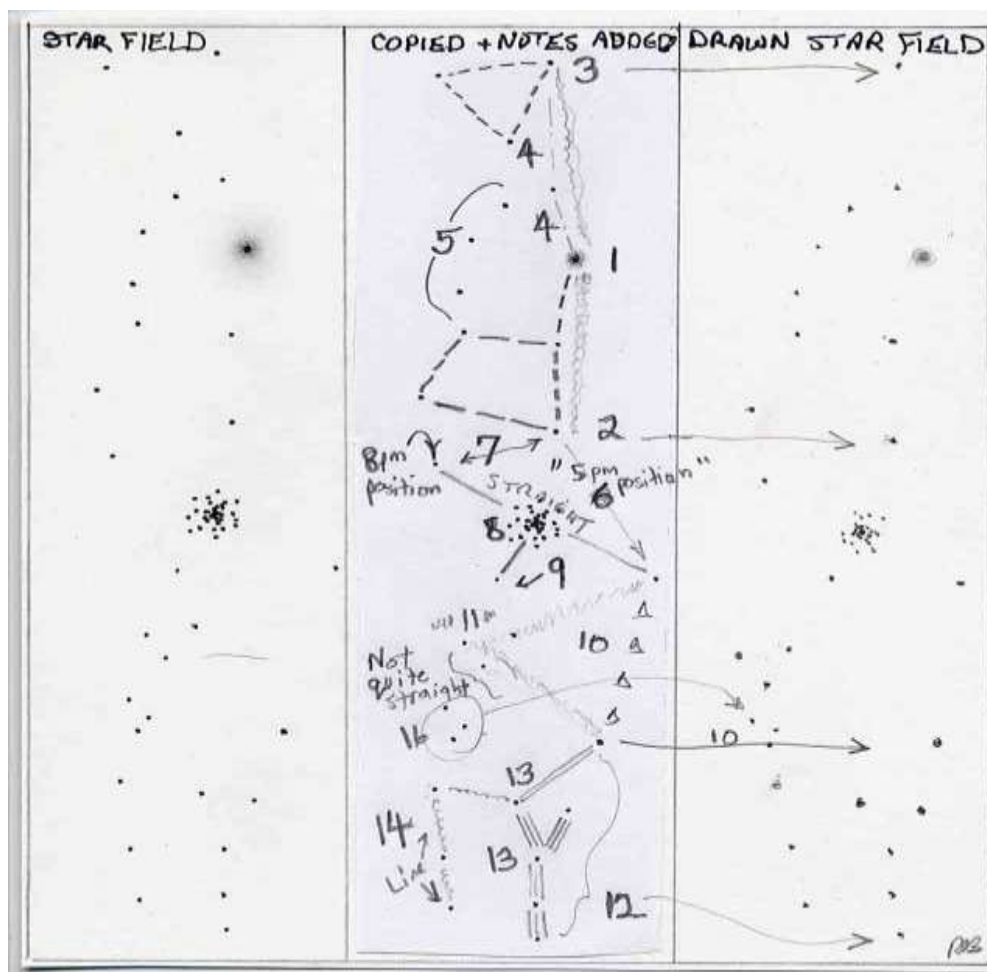 STAR FIELD
COPIED + NOTES ADDED
DRAWN STAR FIELD
3
4
4
5
1
2
7
8pm
position
"5pm
position"
6
STRAIGHT
8
9
11
10
Not
quite
straight
16
10
13
14
13
Line
12